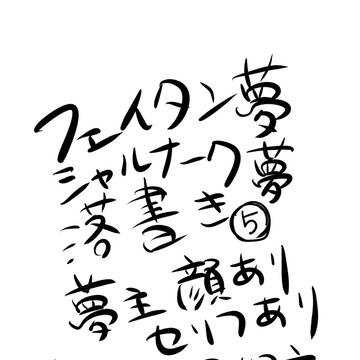 フェイタン夢
シャルナーク夢
落書き⑤
夢主顔あり
セリフあり